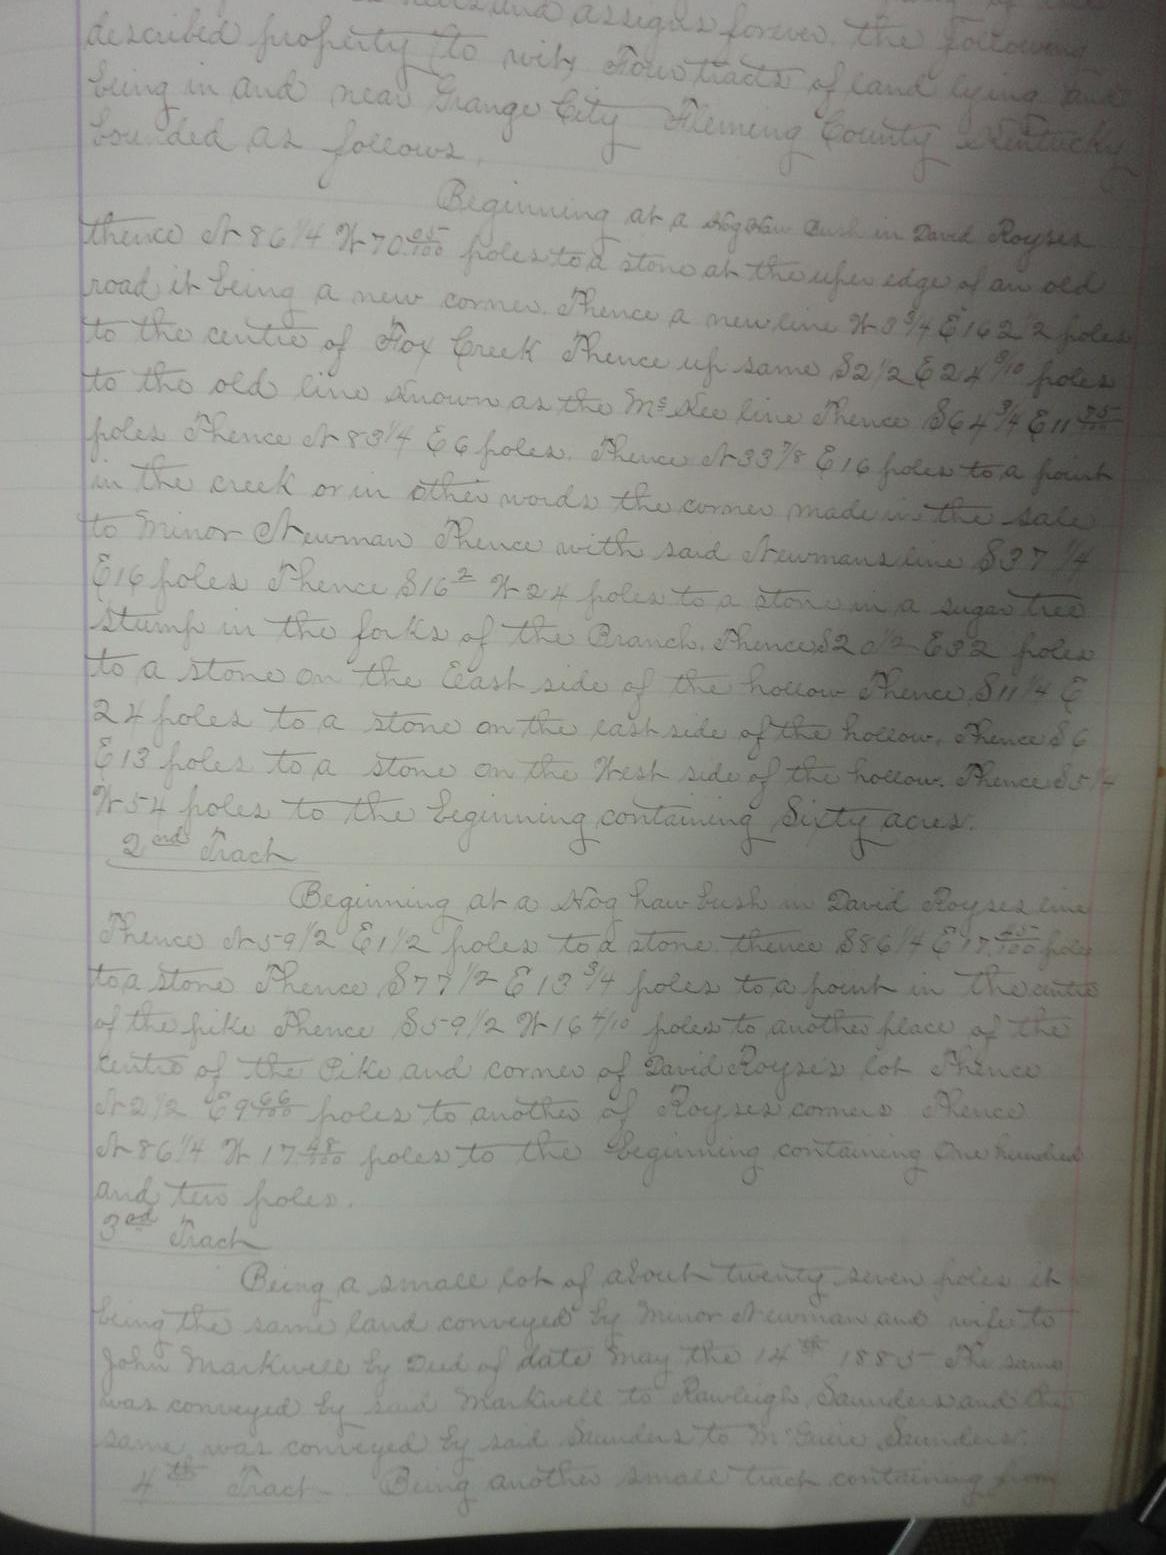 heirs and assigns forever, the following
described property (to wit, Four tracts of land lying and
being in and near Grange City Fleming County Kentucky
bounded as follows,
Beginning at a Hog Haw Bush in David Royses
thence N 86 1/4 W 70 05/100 poles to a stone at the uper edge of an old
road it being a new corner. Thence a new line N 3 3/4 E 162 1/2 poles
to the centre of Fox Creek Thence up same S 2 1/2 E 24 8/10 poles
to the old line known as the McKee line Thence S 64 3/4 E 11 75/100
poles Thence N 83 1/4 E 6 poles. Thence N 33 7/8 E 16 poles to a point
in the creek or in other words the corner made in the sale
to Minor Newman Thence with said Newmans line S 37 1/4
E 16 poles Thence S 16 2 W 24 poles to a stone in a sugar tree
stump in the forks of the Branch. Thence S 20 1/2 E 32 poles
to a stone on the East side of the hollow Thence S 11 1/4 E
24 poles to a stone on the east side of the hollow. Thence S 6
E 13 poles to a stone on the West side of the hollow. Thence S 5 1/4
W 54 poles to the beginning containing Sixty acres.
2nd Tract
Beginning at a Hog haw bush in David Royses line
Thence N 59 1/2 E 1 1/2 poles to a stone. thence S 86 1/4 E 17 45/100 poles
to a stone Thence S 77 1/2 E 13 3/4 poles to a point in the centre
of the pike Thence S 59 1/2 W 16 4/10 poles to another place of the
centre of the Pike and corner of David Royse's lot Thence
N 2 1/2 E 9 66/100 poles to another of Royses corners Thence
N 86 1/4 W 17 48/100 poles to the beginning containing One hundred
and ten poles.
3rd Tract
Being a small lot of about twenty seven poles it
being the same land conveyed by Minor Newman and wife to
John Markwell by Deed of date May the 14th 1885 The same
was conveyed by said Markwell to Rawleigh Saunders and the
same was conveyed by said Saunders to McGuire Saunders.
4th Tract. Being another small tract containing from